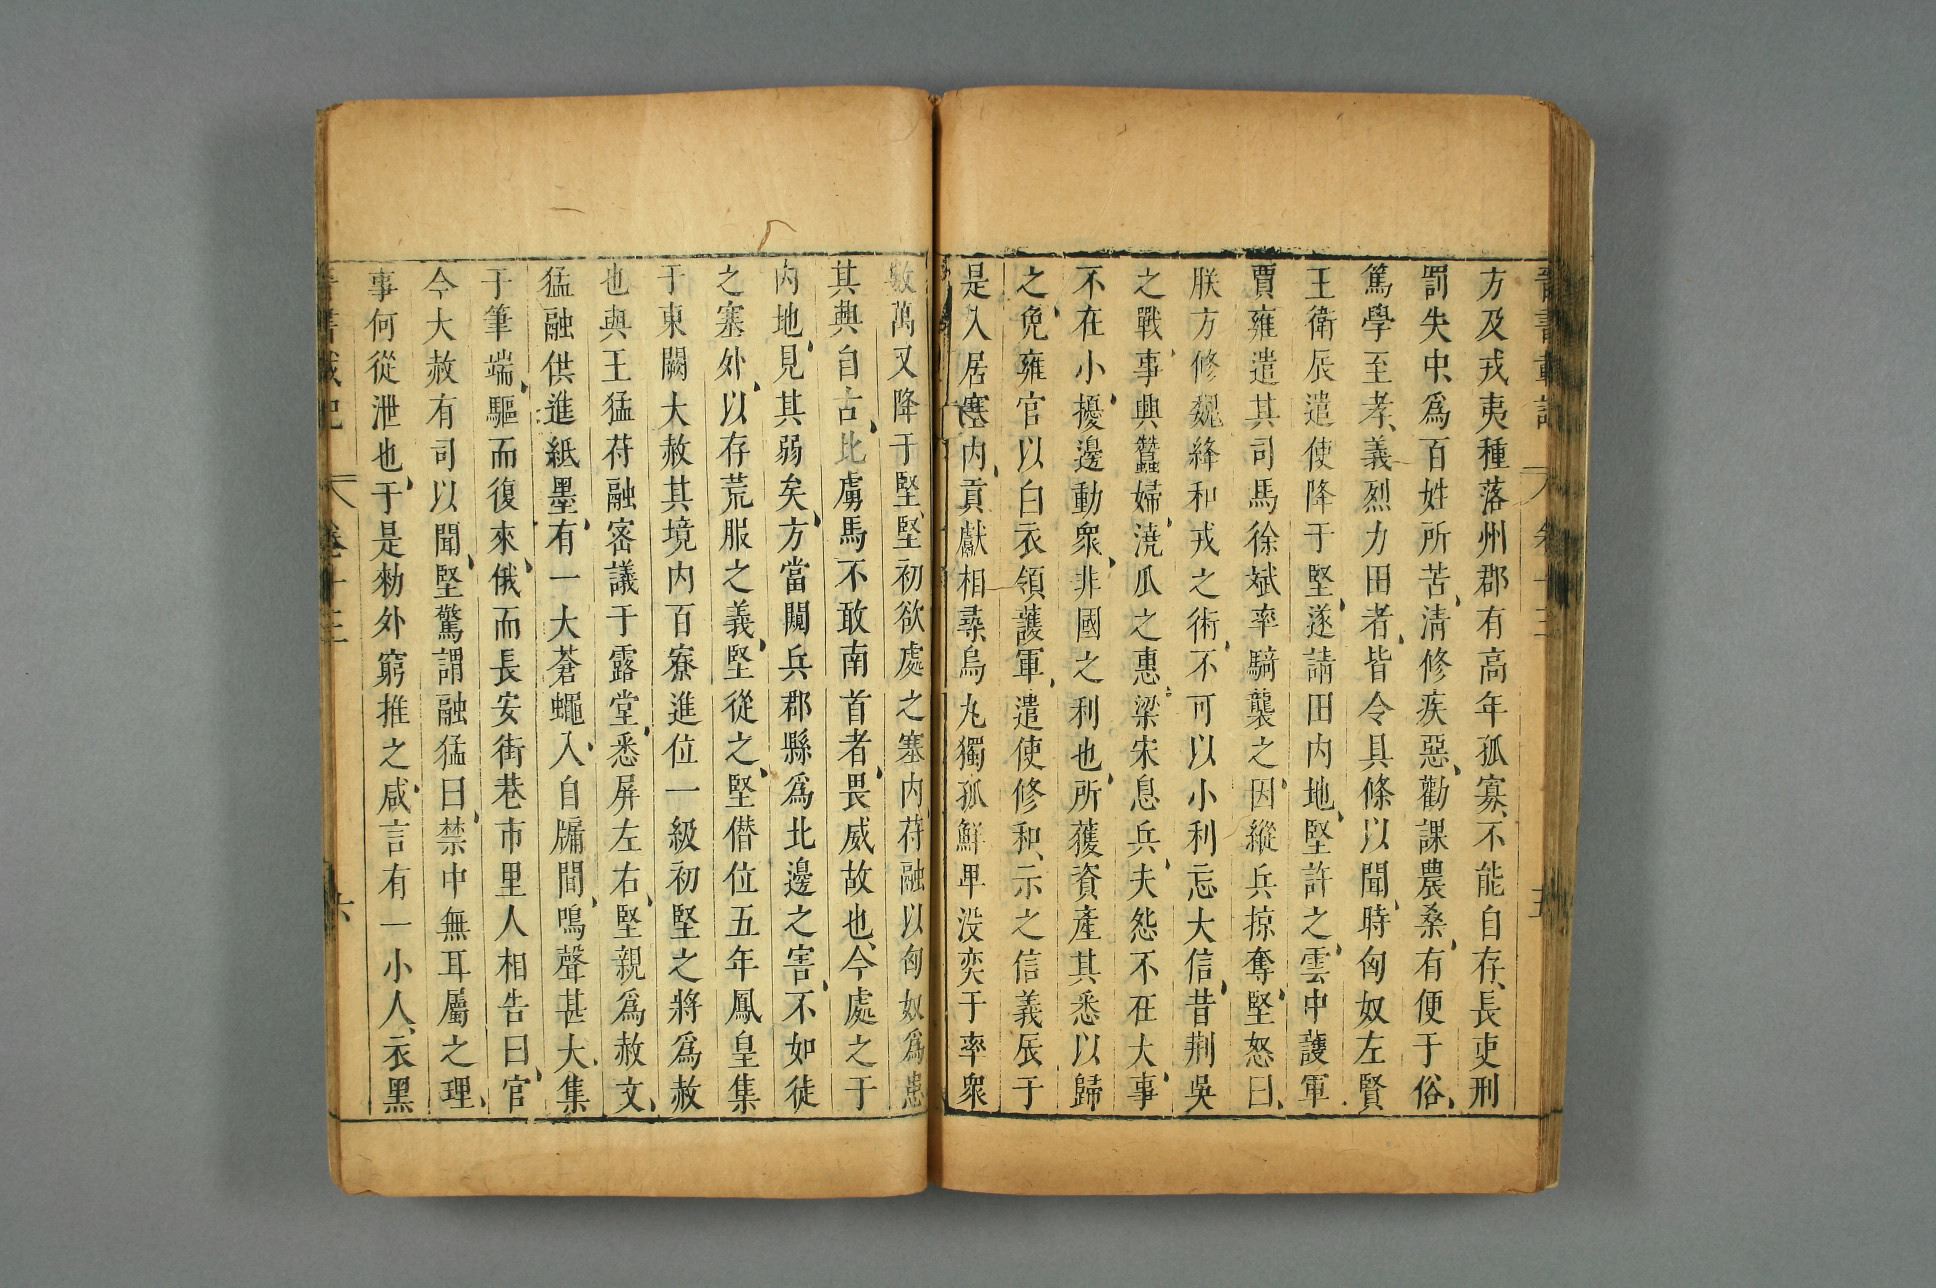 晉書載記 卷十三 五
方及戎夷種落州郡有高年孤寡不能自存、長吏刑
罰失中、爲百姓所苦、清修疾惡、勸課農桑、有便于俗、
篤學至孝、義烈力田者、皆令具條以聞、時匈奴左賢
王衛辰遣使降于堅、遂請田内地、堅許之、雲中護軍
賈雍遣其司馬徐斌率騎襲之、因縱兵掠奪、堅怒曰、
朕方修魏絳和戎之術、不可以小利忘大信、昔荆吳
之戰、事興蠶婦、澆瓜之惠、梁宋息兵、夫怨不在大、事
不在小、擾邊動衆、非國之利也、所獲資產其悉以歸
之、免雍官以白衣領護軍、遣使修和、示之信義辰于
是入居塞内、貢獻相尋、烏丸獨孤鮮卑没奕于率衆
數萬又降于堅、堅初欲處之塞内、苻融以匈奴爲患
其興自古、北虜馬不敢南首者、畏威故也、今處之于
内地、見其弱矣、方當闚兵郡縣爲北邊之害、不如徙
之塞外、以存荒服之義、堅從之、堅僭位五年鳳皇集
于東闕大赦其境内百寮進位一級初堅之將爲赦
也與王猛苻融密議于露堂、悉屏左右、堅親爲赦文、
猛融供進紙墨、有一大蒼蠅入、自牖間、鳴聲甚大、集
于筆端、驅而復來、俄而長安街巷市里人相告曰、官
今大赦有司以聞、堅驚謂融猛曰、禁中無耳屬之理、
事何從泄也、于是勑外窮推之、咸言有一小人、衣黑
晉書載記 卷十三 六